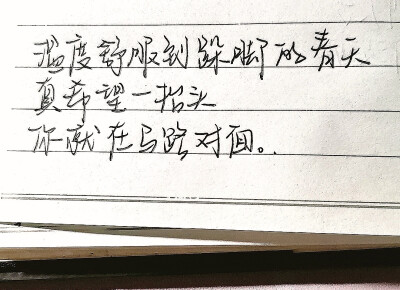 温度舒服到跺脚的春天
真希望一抬头
你就在马路对面。